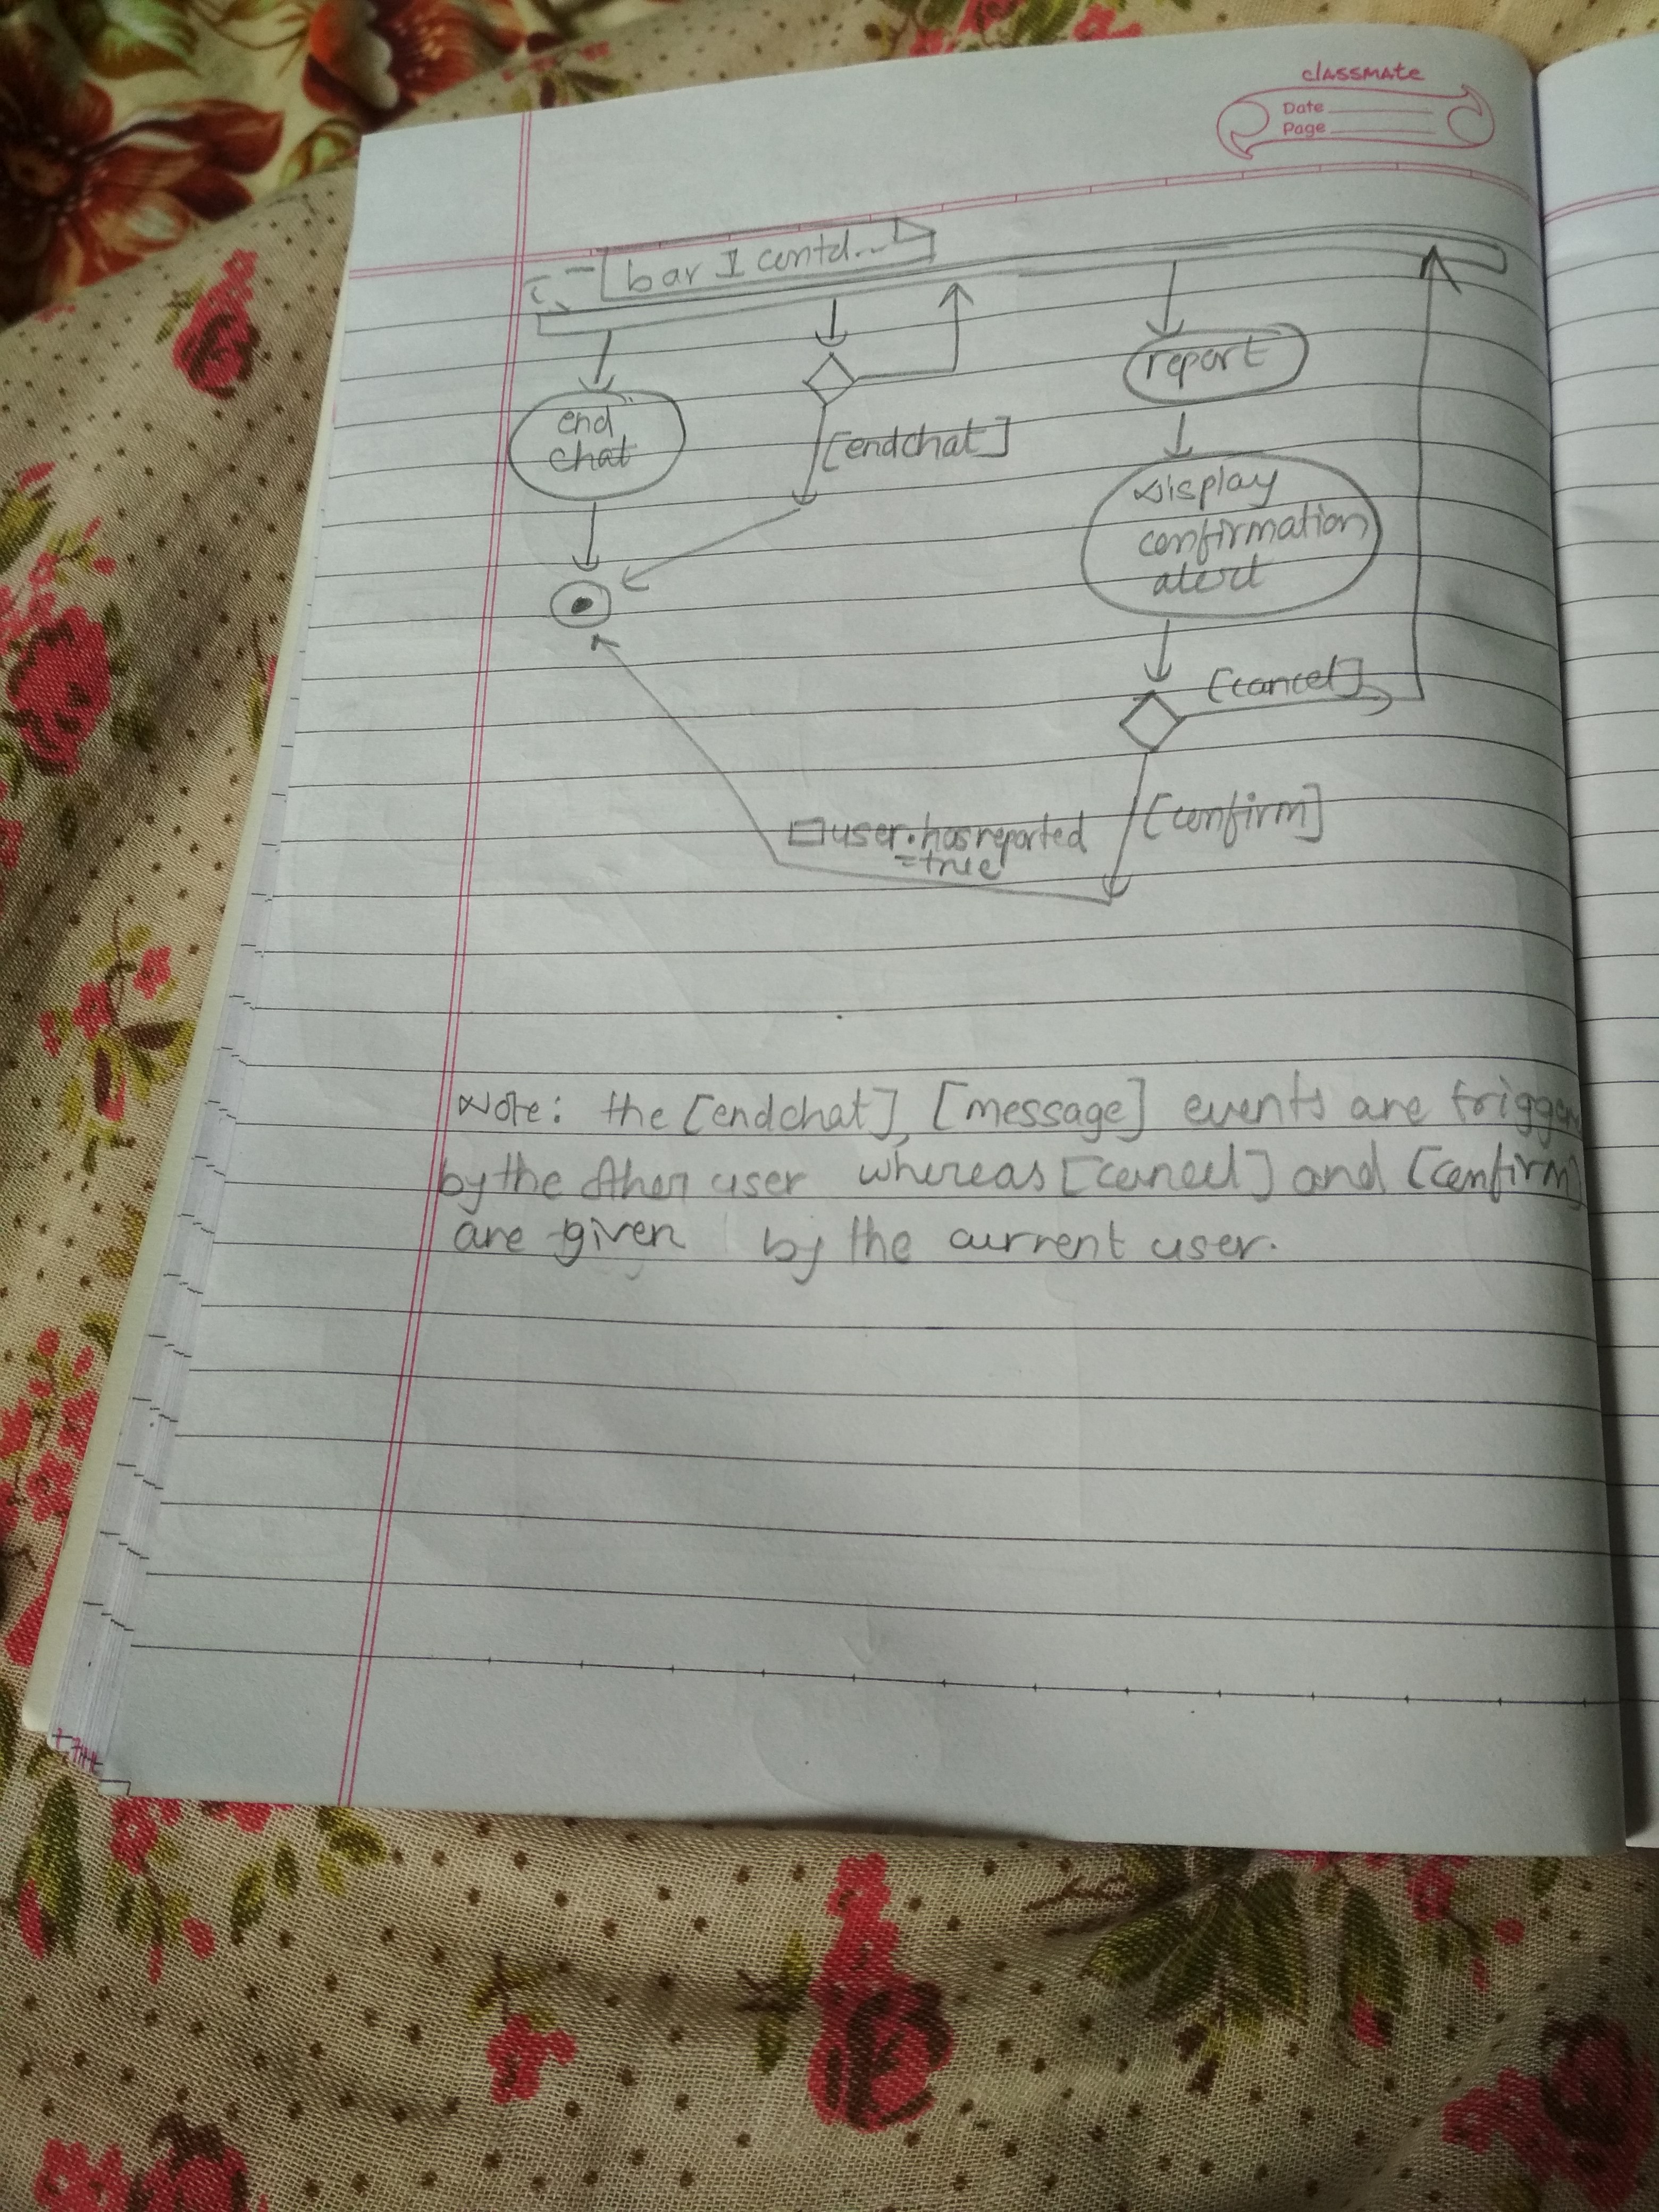 classmate
Date
Page
bar I contd...
end
chat
[endchat]
report
Display
confirmation
alert
[cancel]
[confirm]
user.hasreported
=true
Note: the [endchat], [message] events are trigger
by the other user whereas [cancel] and [confirm]
are given by the current user.